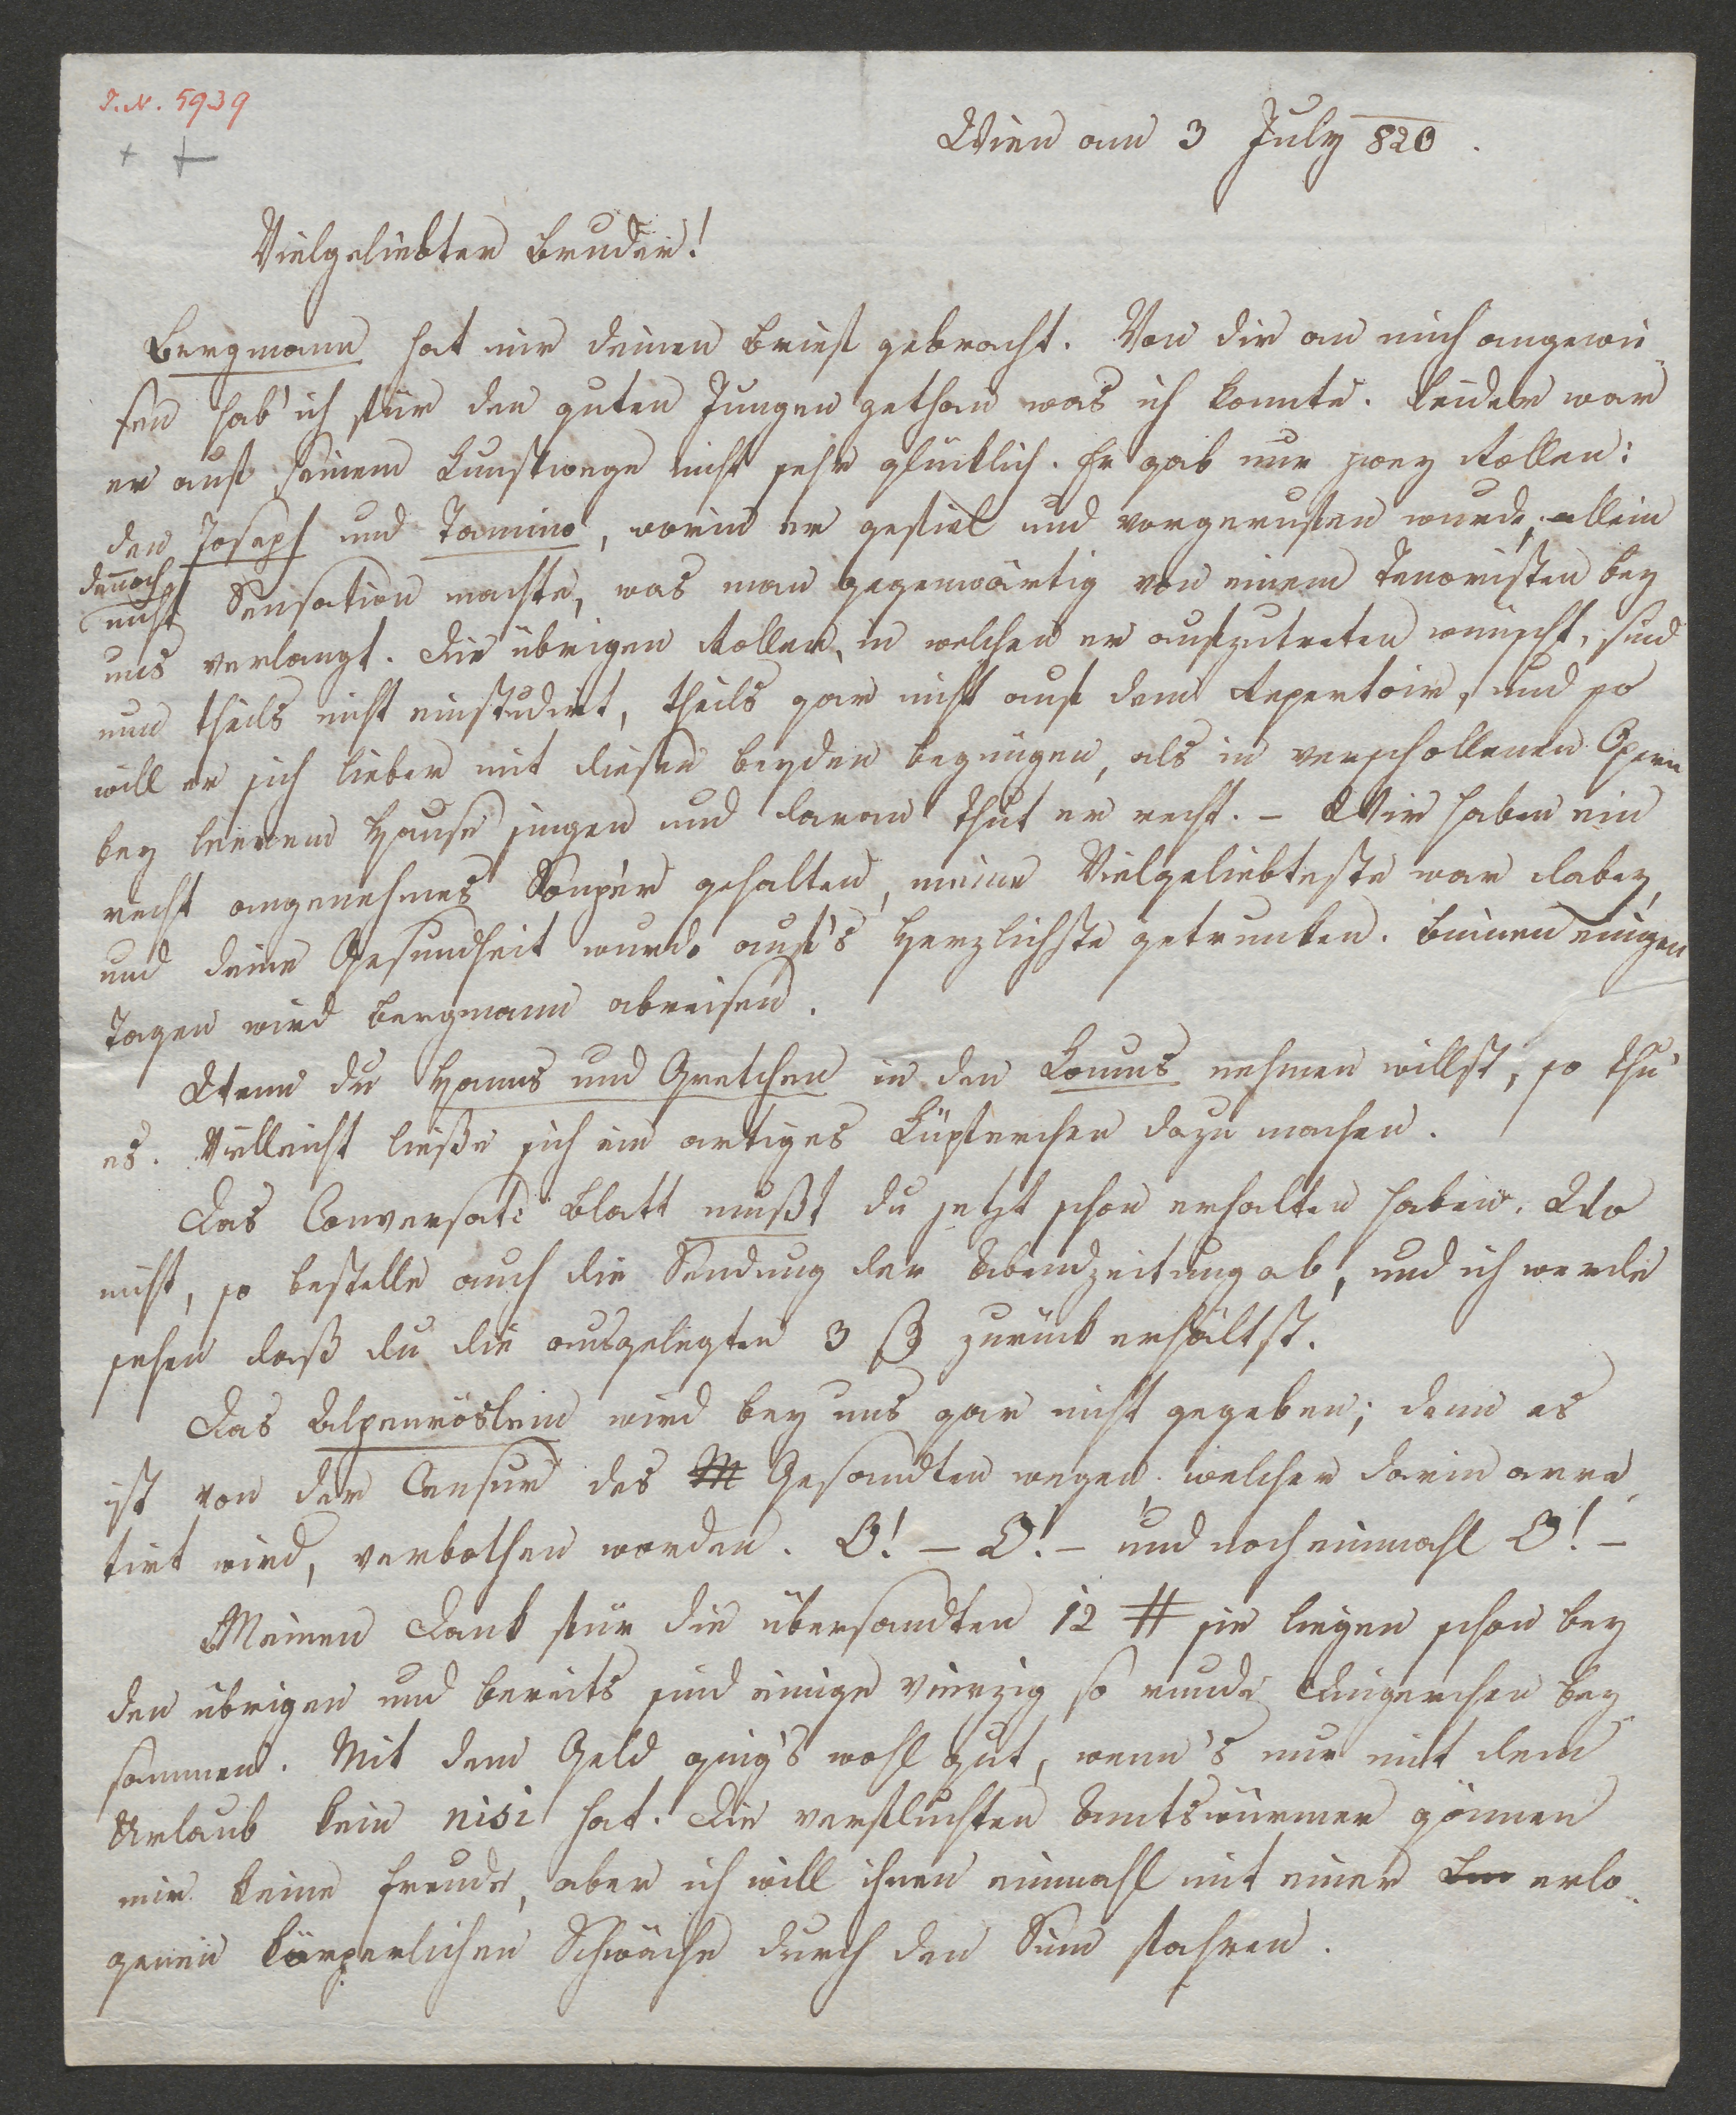 I. N. 5939
Wien am 3 July 820.
Vielgeliebter Bruder!
Bergmann hat mir deinen Brief gebracht. Von dir an mich angewie-
sen hab' ich für den guten Jungen gethan was ich konnte. Leider war
er auf seinem Kunstwege nicht sehr glücklich. Er gab nur zwey Rollen:
den Joseph und Tamino, worin er gefiel und vorgerufen wurde, allein
dennoch
nicht Sensation machte, was man gegenwärtig von einem Tenoristen bey
uns verlangt. Die übrigen Rollen, in welchen er aufzutreten wünscht, sind
nun theils nicht einstudirt, theils gar nicht auf dem Repertoir, und so
will er sich lieber mit diesen beyden begnügen, als in verschollenen Opern
bey leerem Hause singen und daran thut er recht. – Wir haben ein
recht angenehmes Soupér gehalten, meine Vielgeliebteste war dabey,
und deine Gesundheit wurde auf's Herzlichste getrunken. Binnen einigen
Tagen wird Bergmann abreisen.
Wenn du Hanns und Gretchen in den Komus nehmen willst, so thu
es. Vielleicht ließe sich ein artiges Kupferchen dazu machen.
Das Conversat: Blatt mußt du jetzt schon erhalten haben. Wo
nicht, so bestelle auch die Sendung der Abendzeitung ab, und ich werde
sehen daß du die ausgelegten 3 β zurück erhältst.
Das Alpenröslein wird bey uns gar nicht gegeben; denn es
ist von der Censur des M Gesandten wegen, welcher darin arre-
tirt wird, verbothen worden. O! – O! – und noch einmahl O! –
Meinen Dank für die übersandten 12 # sie liegen schon bey
den übrigen und bereits sind einige vierzig so runde Dingerchen bey-
sammen. Mit dem Geld ging's wohl gut, wenn's nur mit dem
Urlaub kein nisi hat. Die verfluchten Amtswürmer gönnen
mir keine Freude, aber ich will ihnen einmahl mit einer erlo-
genen körperlichen Schwäche durch den Sinn fahren.